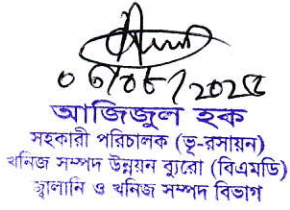 ০৬/০৮/২০২৫
আজিজুল হক
সহকারী পরিচালক (ভূ-রসায়ন)
খনিজ সম্পদ উন্নয়ন ব্যুরো (বিএমডি)
জ্বালানি ও খনিজ সম্পদ বিভাগ